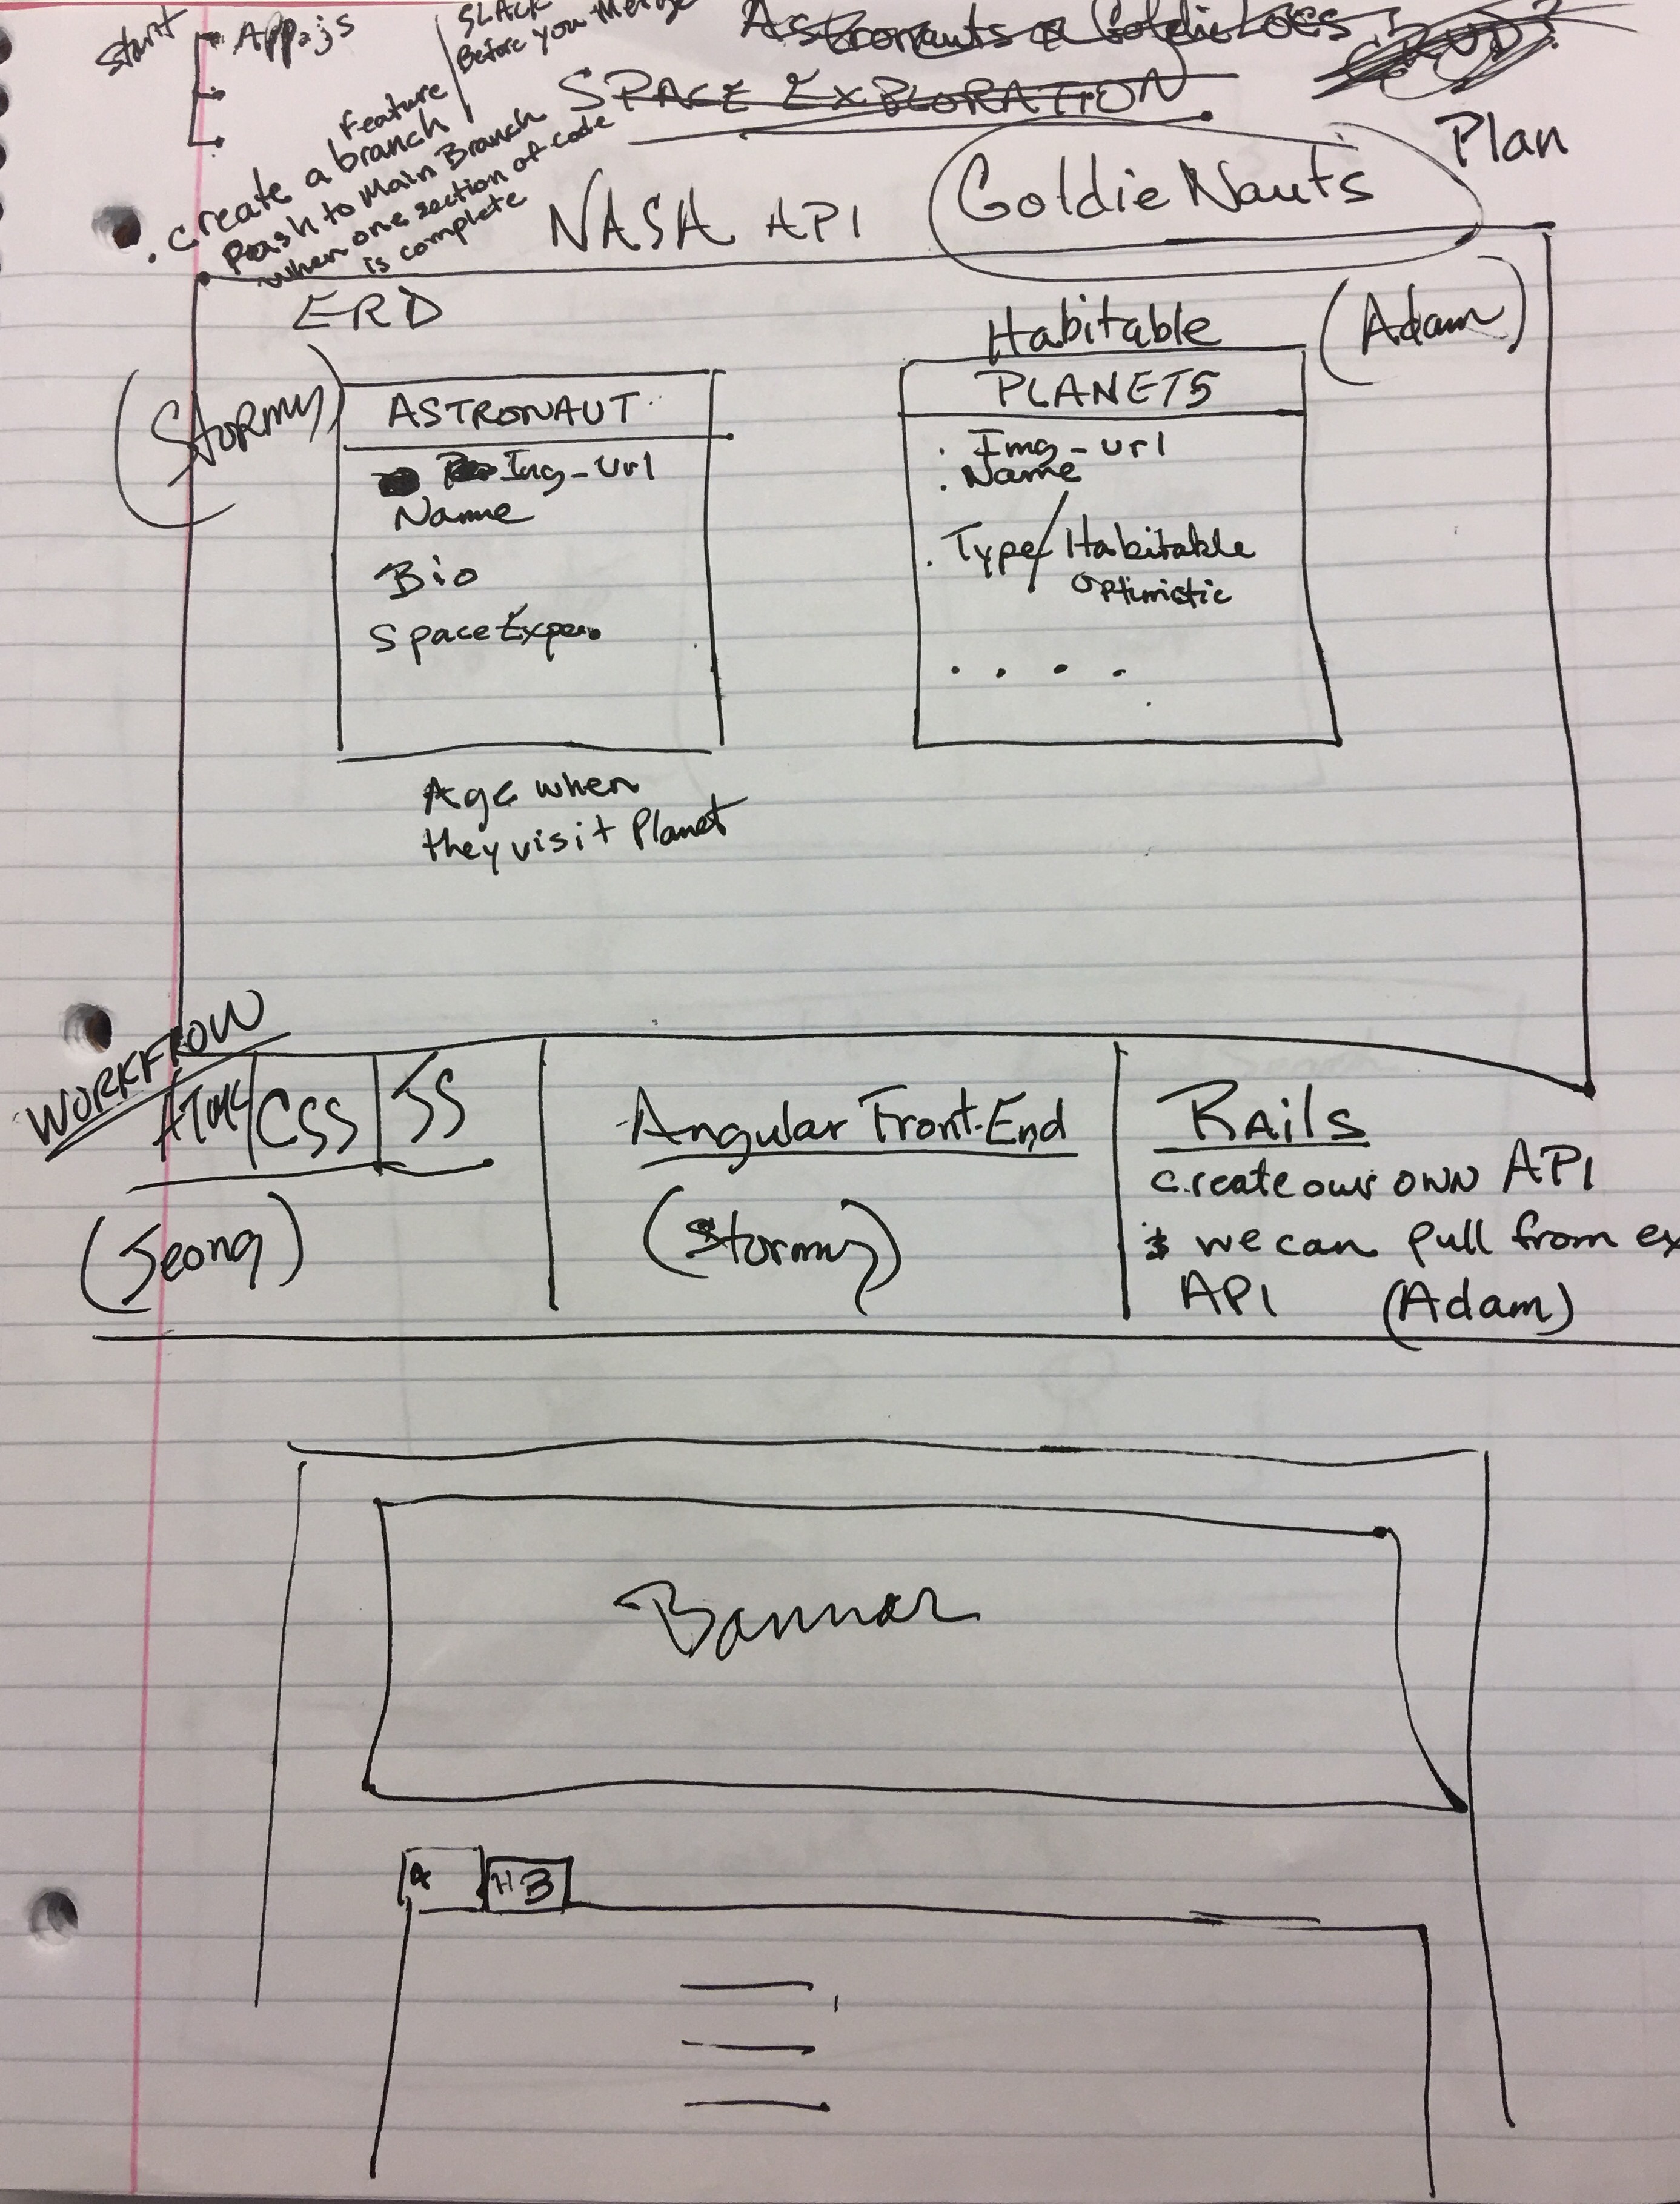 start
App.js
SLACK
Before you Merge
Astronauts & GoldieLocs
SPACE EXPLORATION
Plan
Feature
. create a branch
. Push to Main Branch
when one section of code
is complete
NASA API
GoldieNauts
ERD
(Stormy)
ASTRONAUT
Img-Url
Name
Bio
Space Exper.
Age when
they visit Planet
Habitable
(Adam)
PLANETS
. Img-url
. Name
. Type/Habitable
Optimistic
. . . .
WORKFLOW
HTML/CSS|JS
(Jeong)
Angular Front-End
(Stormy)
Rails
create our own API
we can pull from ex
API (Adam)
Banner
A